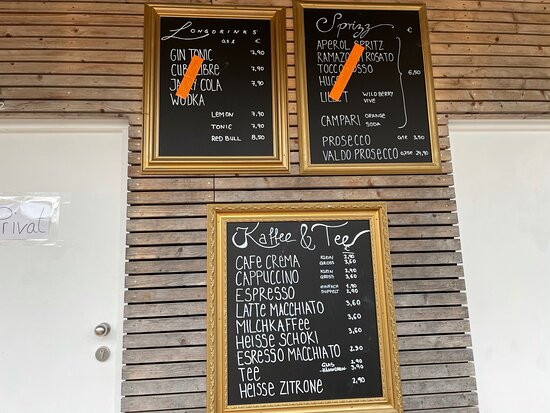 LONGDRINKS
0,2 €
GIN TONIC 7,90
CUBA LIBRE 7,90
JACKY COLA 7,90
WODKA
LEMON 7,90
TONIC 7,90
RED BULL 8,50
Sprizz
€
APEROL SPRITZ
RAMAZOTTI ROSATO
TOCCO ROSSO
HUGO
LILLET WILDBERRY
VIVE
6,90
CAMPARI ORANGE
SODA
PROSECCO 0,1l 3,90
VALDO PROSECCO 0,75l 24,90
Privat
Kaffee & Tee
€
CAFE CREMA KLEIN 2,90
GROSS 3,60
CAPPUCCINO KLEIN 2,90
GROSS 3,60
ESPRESSO EINFACH 1,90
DOPPELT 2,90
LATTE MACCHIATO 3,60
MILCHKAFFEE 3,60
HEISSE SCHOKI 3,60
ESPRESSO MACCHIATO 2,30
TEE GLAS 2,90
KÄNNCHEN 3,90
HEISSE ZITRONE 2,90